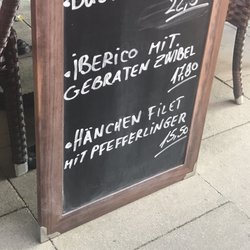 22,5
•IBERICO MIT
GEBRATEN ZWIBEL
17,80
•HÄNCHEN FILET
MIT PFEFFERLINGER
15,50